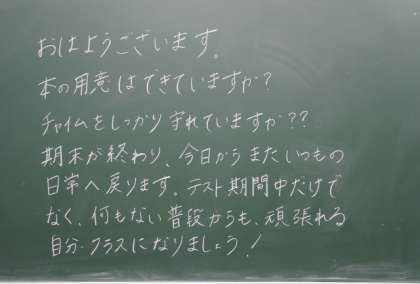 おはようございます。
本の用意はできていますか?
チャイムをしっかり守れていますか??
期末が終わり、今日からまたいつもの
日常へ戻ります。テスト期間中だけで
なく、何もない普段からも、頑張れる
自分・クラスになりましょう!